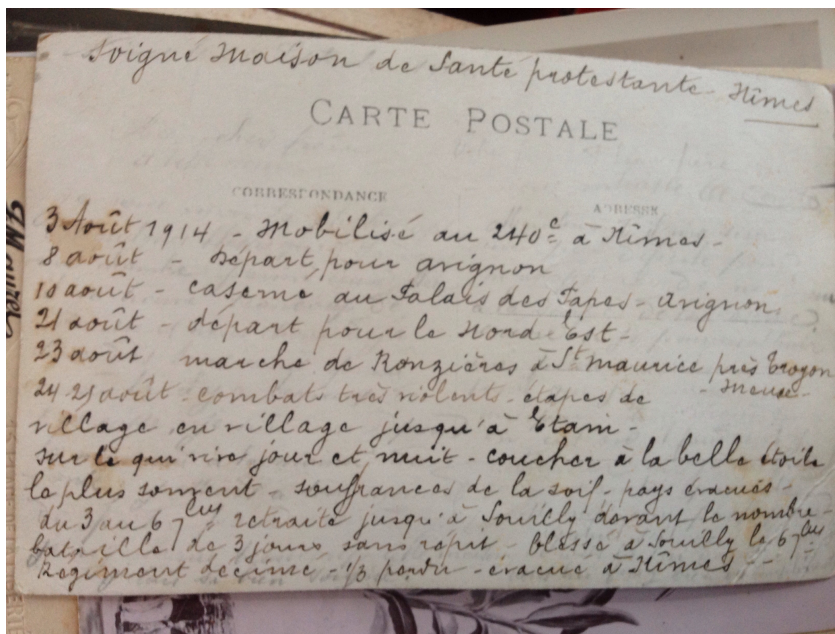 Soigné Maison de Santé protestante - Nîmes
CARTE POSTALE
CORRESPONDANCE
ADRESSE
3 Août 1914 - Mobilisé au 240e à Nîmes -
8 août - Départ pour Avignon
10 août - caserne au Palais des Papes - Avignon
21 août - départ pour le Nord Est -
23 août marche de Ronzières à St Maurice près Troyon
- Meuse -
24 25 août - combats très violents - étapes de
village en village jusqu'à Etain -
sur le qui vive jour et nuit - coucher à la belle étoile
le plus souvent - souffrances de la soif - pays évacués -
du 3 au 6 7bre retraite jusqu'à Souilly devant le nombre -
bataille de 3 jours sans répit - blessé à Souilly le 6 7bre
Régiment décimé - 1/3 perdu - évacué à Nîmes -